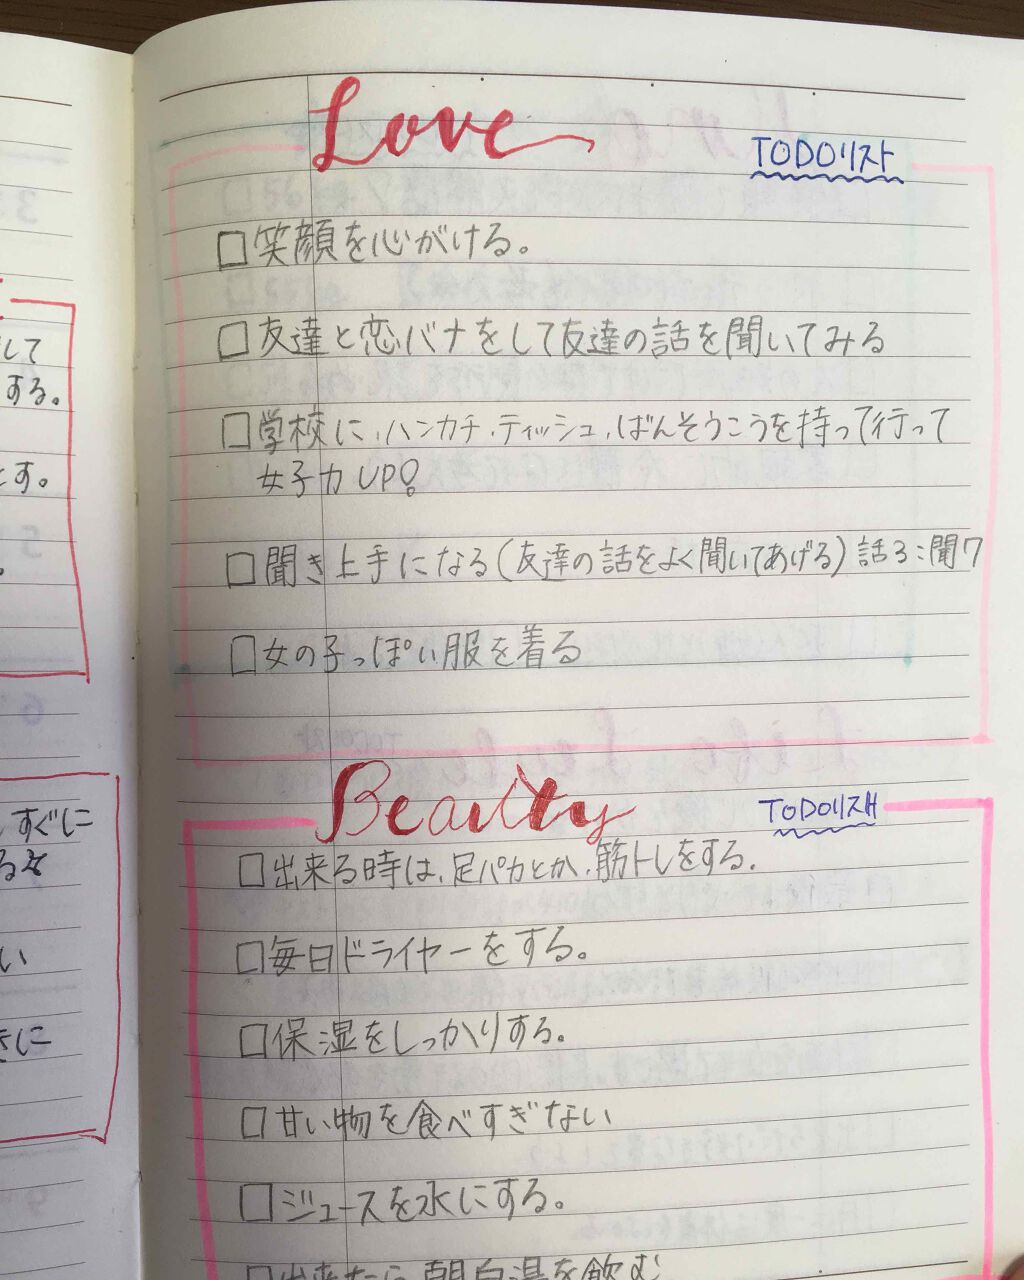 して
する。
とす。
。
すぐに
る々
い
きに
Love
TODOリスト
□笑顔を心がける。
□友達と恋バナをして友達の話を聞いてみる
□学校に、ハンカチ、ティッシュ、ばんそうこうを持って行って
女子力UP!
□聞き上手になる(友達の話をよく聞いてあげる)話3:聞7
□女の子っぽい服を着る
Beauty
TODOリスト
□出来る時は、足パカとか、筋トレをする.
□毎日ドライヤーをする。
□保湿をしっかりする。
□甘い物を食べすぎない
□ジュースを水にする。
□出来たら朝白湯を飲む